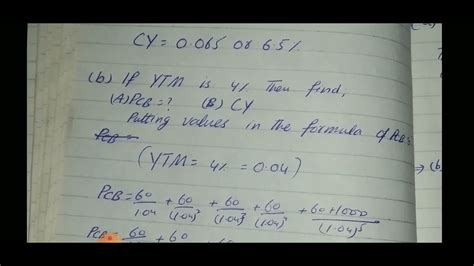 CY = 0.065 or 6.5%
(b) If YTM is 4% Then find,
(A) PCB = ? (B) CY
Putting values in the formula of PCB:
PCB=
(YTM = 4% = 0.04)
PCB = 60/1.04 + 60/(1.04)² + 60/(1.04)³ + 60/(1.04)⁴ + 60+1000/(1.04)⁵
→ (b
PCB = 60 + 60